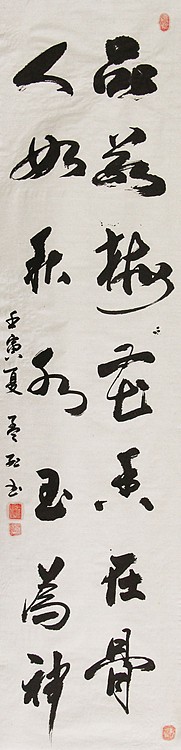 品若梅花香在骨
人如秋水玉為神
壬寅夏